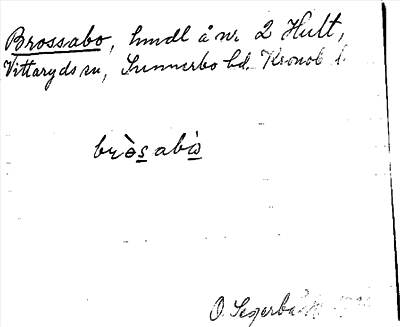 Brossabo, hmdl å nr 2 Hult,
Vittaryds sn, Sunnerbo hd. Kronob l.
bròsabò
O. Segerbäck